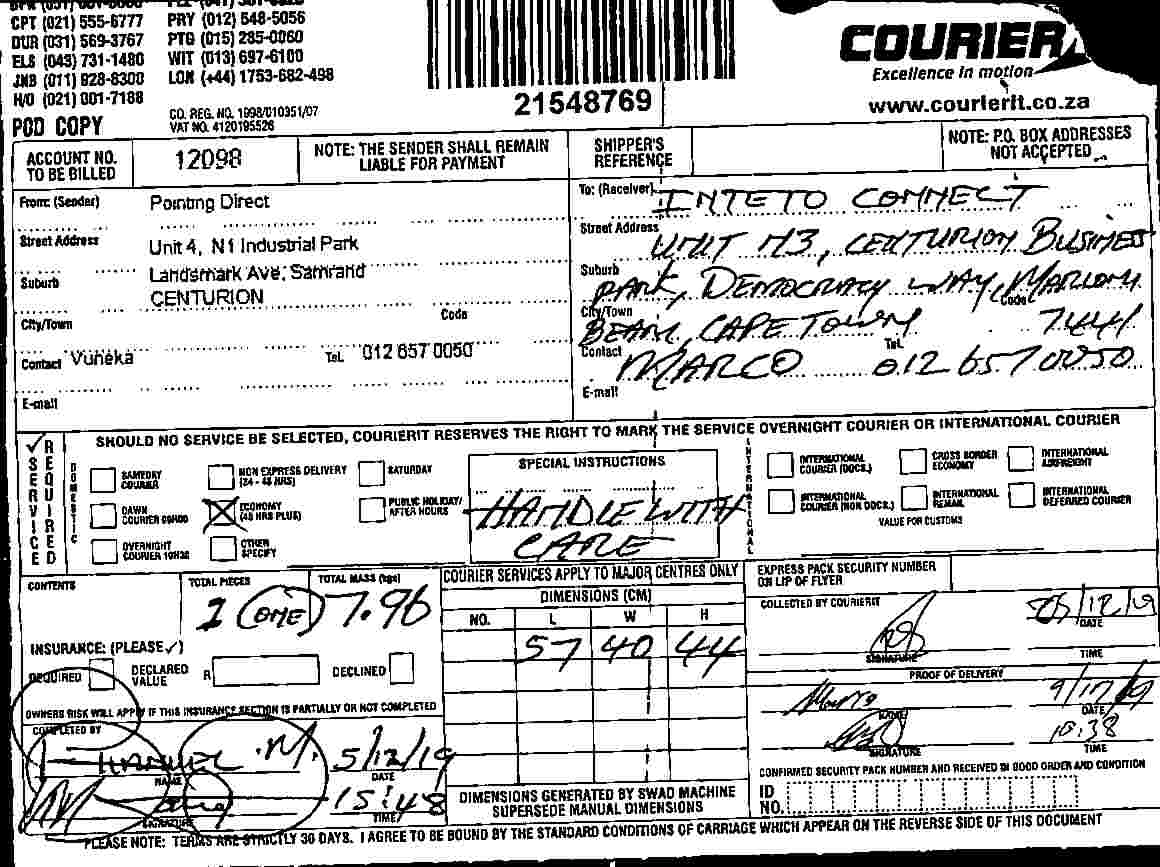 CPT (021) 555-6777 PRY (012) 548-5056
DUR (031) 569-3767 PTG (015) 285-0060
ELS (043) 731-1480 WIT (013) 697-6100
JNB (011) 928-8300 LON (+44) 1753-682-498
H/O (021) 001-7188
CO. REG. NO. 1998/010351/07
VAT NO. 4120195526
POD COPY
21548769
COURIER
Excellence in motion
www.courierit.co.za
ACCOUNT NO. TO BE BILLED
12098
NOTE: THE SENDER SHALL REMAIN LIABLE FOR PAYMENT
SHIPPER'S REFERENCE
NOTE: P.O. BOX ADDRESSES NOT ACCEPTED
From: (Sender) Pointing Direct
Street Address Unit 4, N1 Industrial Park
Suburb Landsmark Ave, Samrand
CENTURION
City/Town Code
Contact Vuneka Tel. 012 657 0050
E-mail
To: (Receiver) INTETO CONNECT
Street Address UNIT H3, CENTURION BUSINESS
Suburb PARK, DEMOCRACY WAY, Code
City/Town CAPE TOWN 7441
Contact MARCO Tel. 012 657 0050
E-mail
✓ SERVICE REQUIRED
SHOULD NO SERVICE BE SELECTED, COURIERIT RESERVES THE RIGHT TO MARK THE SERVICE OVERNIGHT COURIER OR INTERNATIONAL COURIER
DOMESTIC
SAMEDAY COURIER
NON EXPRESS DELIVERY (24 - 48 HRS)
SATURDAY
DAWN COURIER 09H00
ECONOMY (48 HRS PLUS)
PUBLIC HOLIDAY/ AFTER HOURS
OVERNIGHT COURIER 10H30
OTHER SPECIFY
SPECIAL INSTRUCTIONS
HANDLE WITH
CARE
INTERNATIONAL
INTERNATIONAL COURIER (DOCS.)
CROSS BORDER ECONOMY
INTERNATIONAL AIRFREIGHT
INTERNATIONAL COURIER (NON DOCS.)
INTERNATIONAL REMAIL
INTERNATIONAL DEFERRED COURIER
VALUE FOR CUSTOMS
CONTENTS
TOTAL PIECES
1 (ONE)
TOTAL MASS (kgs)
7.96
INSURANCE: (PLEASE ✓)
REQUIRED DECLARED VALUE R DECLINED
OWNERS RISK WILL APPLY IF THIS INSURANCE SECTION IS PARTIALLY OR NOT COMPLETED
COMPLETED BY
M. 5/12/19
NAME DATE
15:48
SIGNATURE TIME
COURIER SERVICES APPLY TO MAJOR CENTRES ONLY
DIMENSIONS (CM)
NO. L W H
57 40 44
DIMENSIONS GENERATED BY SWAD MACHINE SUPERSEDE MANUAL DIMENSIONS
EXPRESS PACK SECURITY NUMBER ON LIP OF FLYER
COLLECTED BY COURIERIT
05/12/19
DATE
SIGNATURE TIME
PROOF OF DELIVERY
9/12/19
NAME DATE
10:38
SIGNATURE TIME
CONFIRMED SECURITY PACK NUMBER AND RECEIVED IN GOOD ORDER AND CONDITION
ID NO.
PLEASE NOTE: TERMS ARE STRICTLY 30 DAYS. I AGREE TO BE BOUND BY THE STANDARD CONDITIONS OF CARRIAGE WHICH APPEAR ON THE REVERSE SIDE OF THIS DOCUMENT